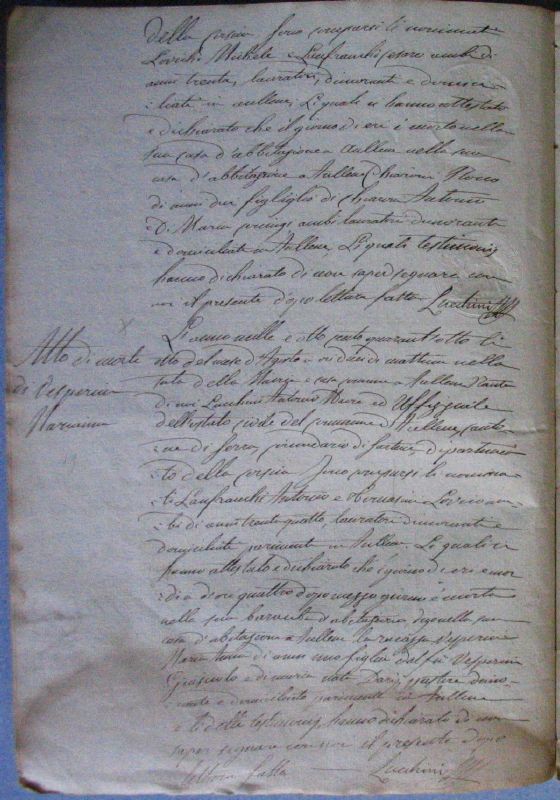 della corsica sono comparsi li nominati
Lovichi Michele e Lanfranchi Cesare ambi di
anni trenta, lavoratori, dimoranti e domici-
liati in aullene, Li quali ci hanno attestato
e dichiarato che il giorno di eri è morto nella
sua casa d'abbitazione a Aullene nella sua
casa d'abbitazione a Aullene Chiaroni Rocco
di anni due figliglio di Chiaroni Antonio
e di Maria ambi lavoratori dimoranti
e domiciliati in Aullene, Li quali testimonij
hanno dichiarato di non saper segnare con
noi il presente dopo lettura fatta Lucchini
Atto di morte
di Vesperini
Marianna
L'anno mille e otto cento quarant'otto li
otto del mese d'Agosto a ore dieci di mattina nella
sala della Maeria e casa comune a Aullene Davanti
di noi Lucchini Antonio Maere ed Uffizziale
dell'estato civile del comune d'Aullene, canto-
ne di Serra, circundario di Sartene, dipartimen-
to della corsica Sono comparsi li nomina-
ti Lanfranchi Antonio e am-
bi di anni trenta quattro, lavoratori dimoranti e
domiciliati parimenti in Aullene. Li quali ci
hanno attestato e dichiarato che il giorno di eri
a ore quattro dopo mezzo giorno è morta
nella sua d'abitazione nella sua
casa d'abitazione a Aullene la ragazza Vesperini
Maria Anna di anni uno figlia del fù Vesperini
e di Maria dimo-
rante e domiciliata parimenti in Aullene
e li detti testimonij hanno dichiarato di non
saper segnare con noi il presente dopo
lettura fatta Lucchini